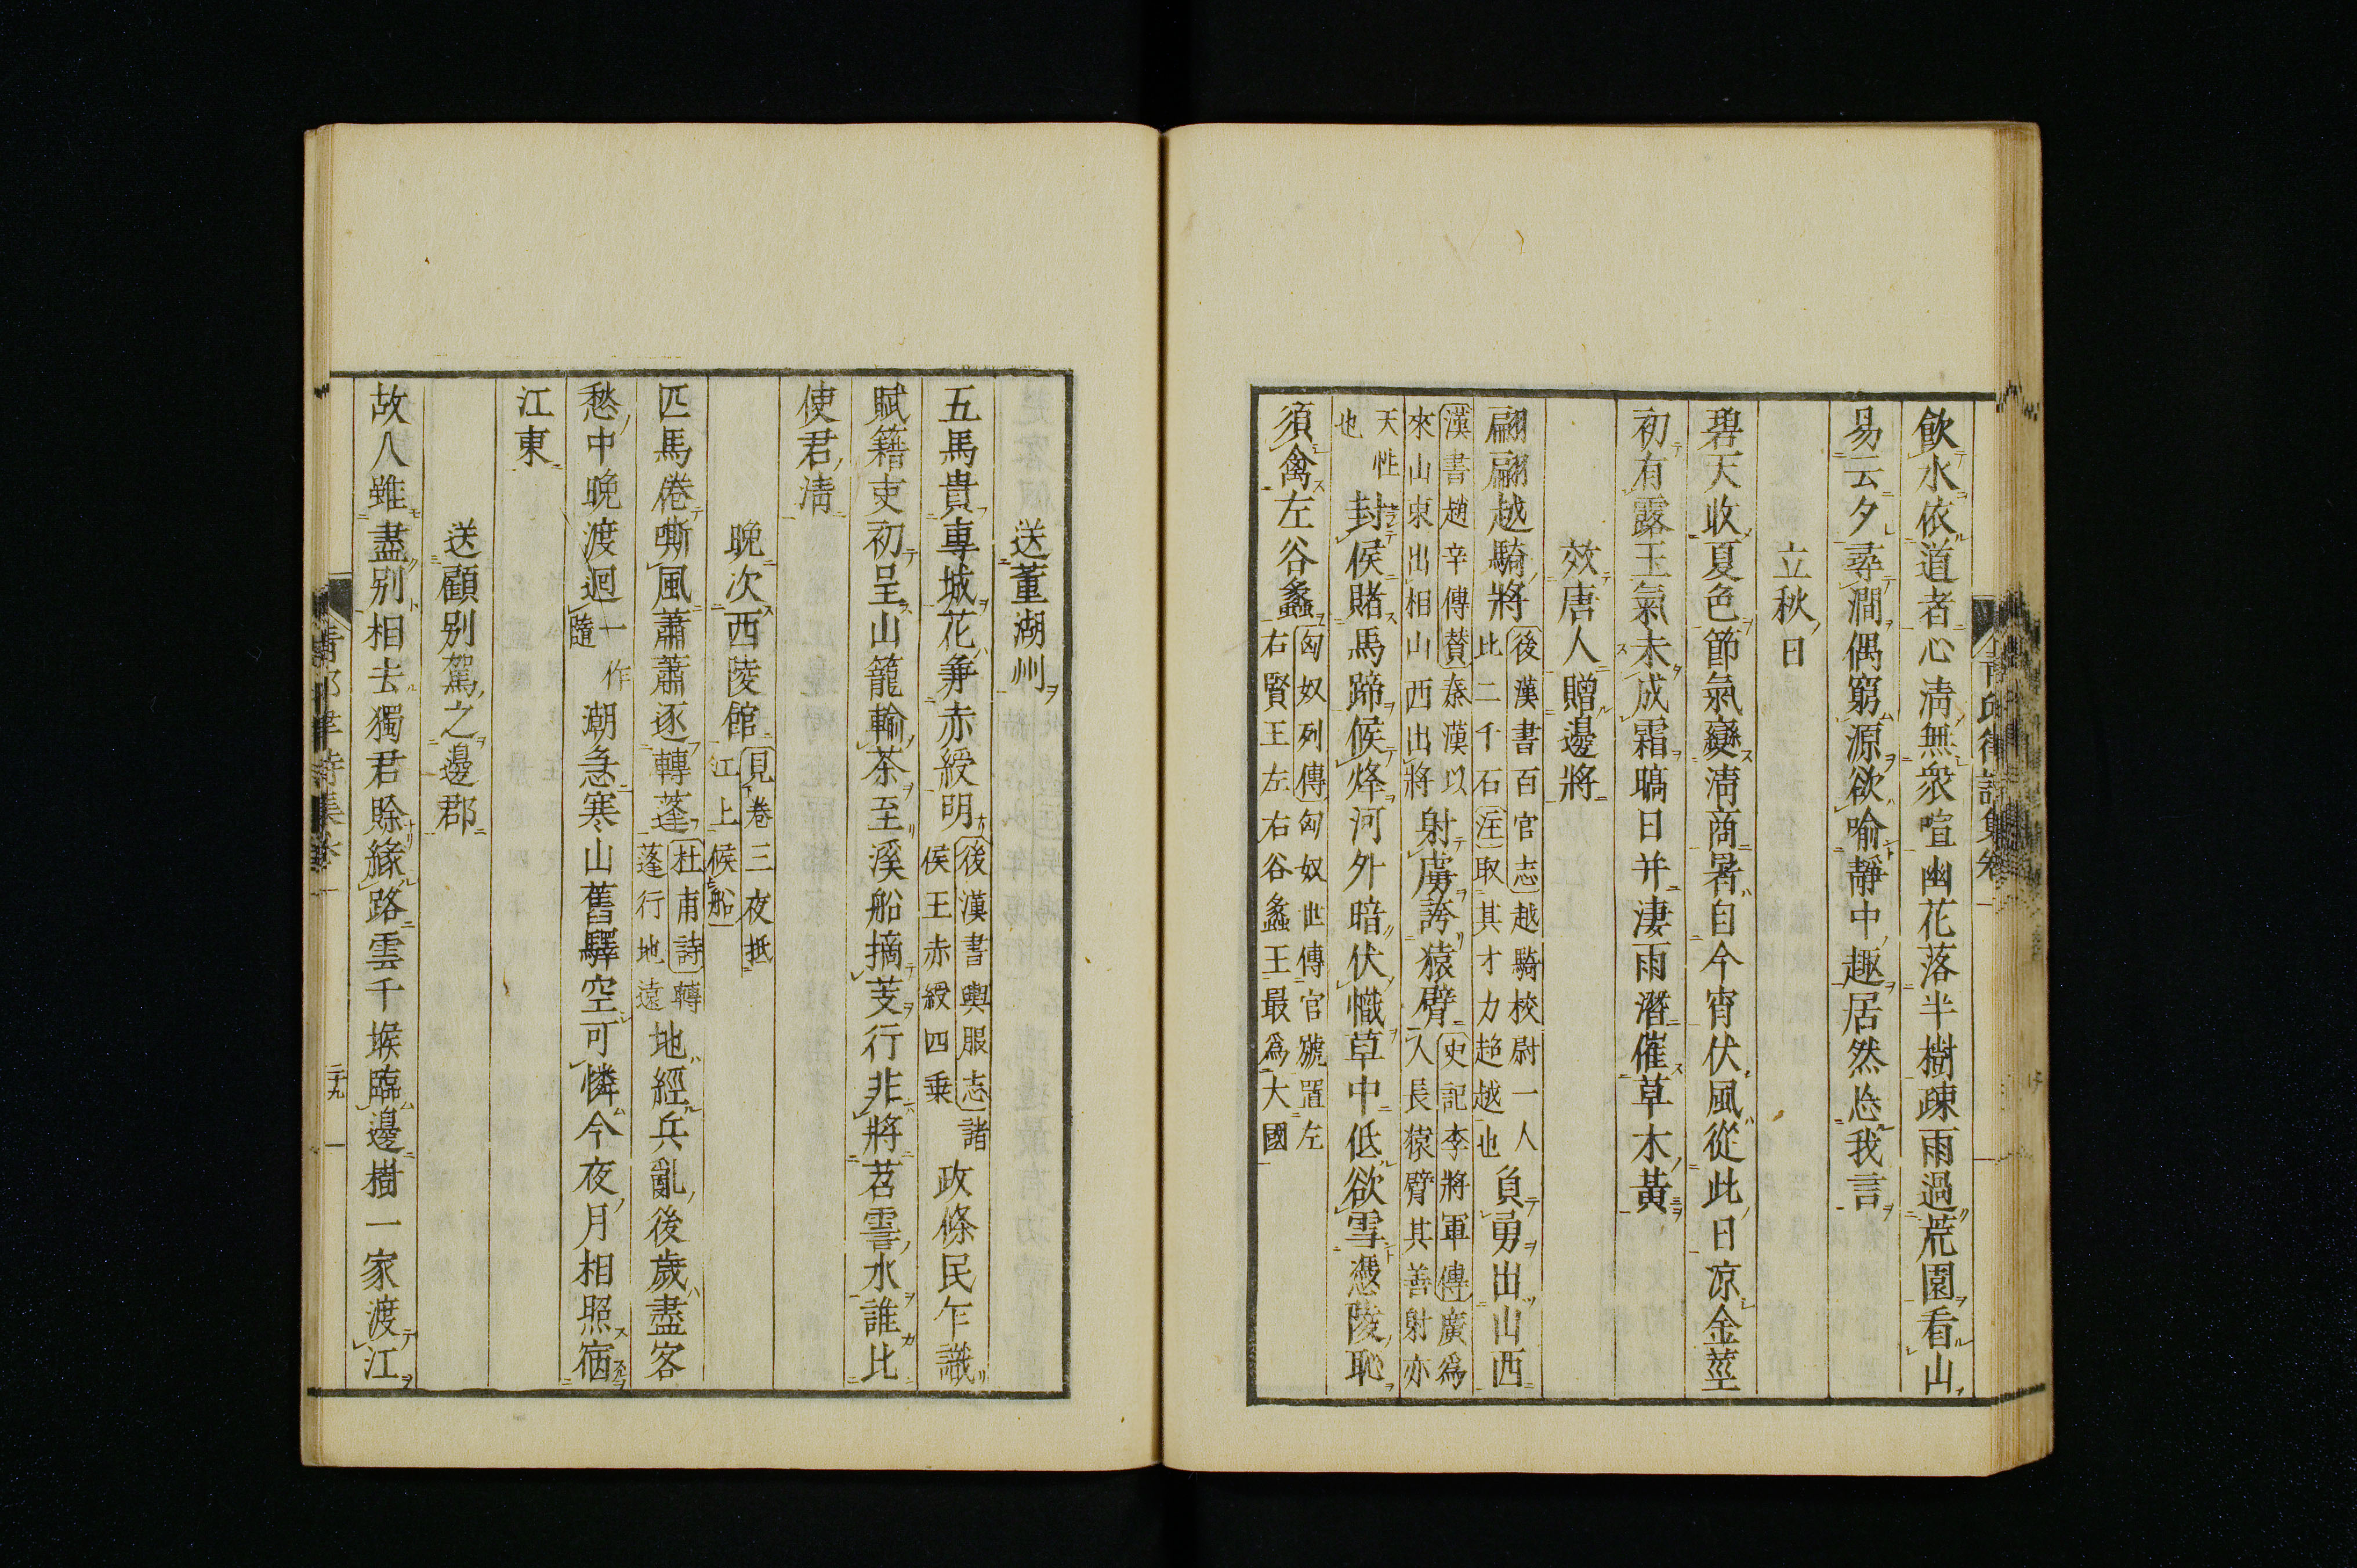 飲水依道者心淸無衆喧幽花落半樹疎雨過荒園看山
易云夕尋澗偶窮源欲喻靜中趣居然忘我言
立秋日
碧天收夏色節氣變淸商暑自今宵伏風從此日凉金莖
初有露玉氣未成霜暠日并淒雨潛催草木黃
效唐人贈邊將
翩翩越騎將
後漢書百官志越騎校尉一人
比二千石注取其才力超越也
負勇出山西
漢書趙辛傳贊秦漢以
來山東出相山西出將
射虜誇猿臂
史記李將軍傳廣爲
人長猿臂其善射亦
天性
也
封侯賭馬蹄候烽河外暗伏幟草中低欲雪憑陵恥
須禽左谷蠡
匈奴列傳匈奴世傳官號置左
右賢王左右谷蠡王最爲大國
送董湖州
五馬貴專城花兼赤綬明
後漢書輿服志諸
侯王赤綬四乘
政條民乍識
賦籍吏初呈山籠輸茶至溪船摘芰行非將苕霅水誰比
使君淸
晩次西陵館
見卷三夜抵
江上候船
匹馬倦嘶風蕭蕭逐轉蓬
杜甫詩轉
蓬行地遠
地經兵亂後歲盡客
愁中晩渡迴
一作
隨
潮急寒山舊驛空可憐今夜月相照宿
江東
送顧别駕之邊郡
故人雖盡别相去獨君賒緣路雲千堠臨邊樹一家渡江
二十九